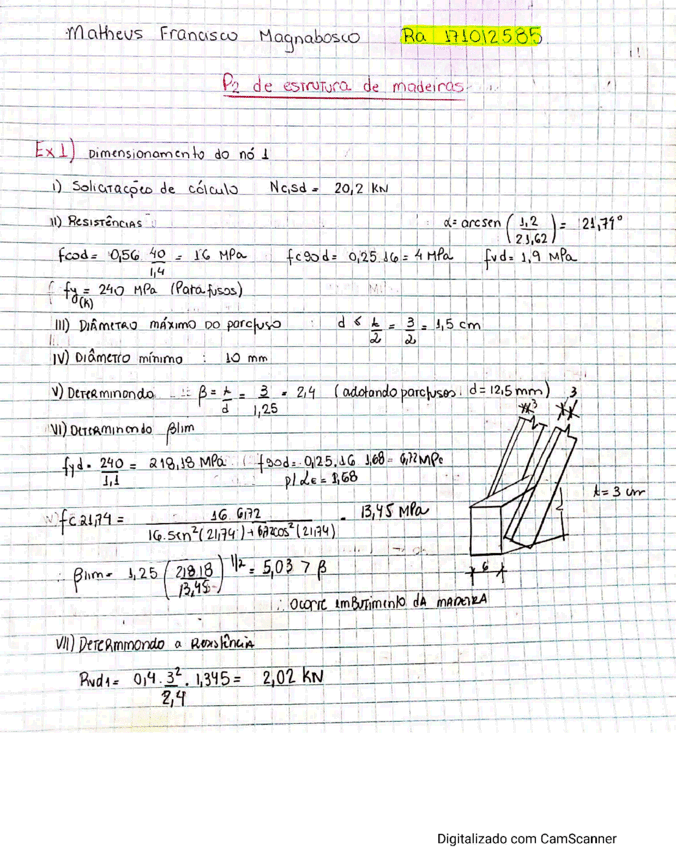 Matheus Francisco Magnabosco Ra 171012585
P2 de estrutura de madeiras
Ex1) Dimensionamento do nó 1
I) Solicitações de cálculo Nc,sd = 20,2 KN
II) Resistências: α = arcsen (1,2/21,62) = 21,74°
fcod = 0,56 . 40/1,4 = 16 MPa fc90d = 0,25.16 = 4 MPa fvd = 1,9 MPa
fyd(k) = 240 MPa (Parafusos)
III) Diâmetro máximo do parafuso : d ≤ t/2 = 3/2 = 1,5 cm
IV) Diâmetro mínimo : 10 mm
V) Determinando β = t/d = 3/1,25 = 2,4 (adotando parafusos d = 12,5 mm)
3 3
VI) Determinando βlim
fyd = 240/1,1 = 218,18 MPa f90d = 0,25.16 1,68 = 6,72 MPa
p/ αe = 1,68
t = 3 cm
fc 21,74 = 16 6,72 / 16.sen²(21,74) + 6,72cos²(21,74) = 13,45 MPa
6
∴ βlim = 1,25 (218,18/13,45)^1/2 = 5,03 > β
∴ ocorre embutimento da madeira
VII) Determinando a Resistência
Rvd1 = 0,4 . 3²/2,4 . 1,345 = 2,02 KN
Digitalizado com CamScanner